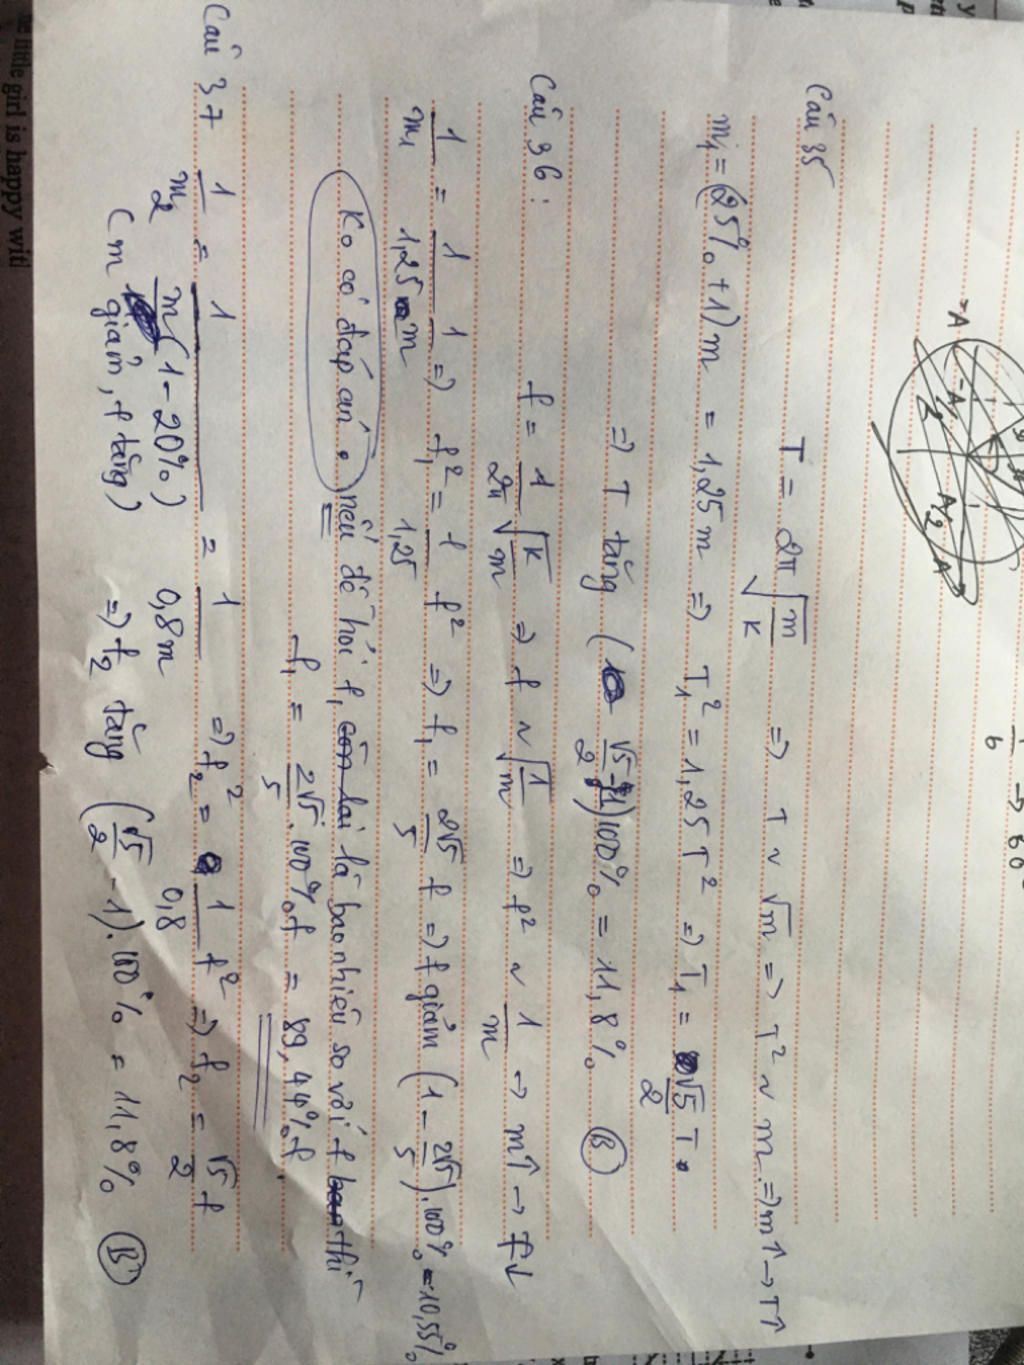 Câu 35
T = 2π √(m/K) => T ~ √m => T² ~ m => m↑ → T↑
m₁ = (25% + 1)m = 1,25m => T₁² = 1,25T² => T₁ = √5/2 T.
=> T tăng (√5/2 - 1)100% = 11,8% (B)
Câu 36 :
f = 1/2π √(K/m) => f ~ √(1/m) => f² ~ 1/m => m↑ → f↓
1/m₁ = 1/1,25m => f₁² = 1/1,25 f² => f₁ = 2√5/5 f => f giảm (1 - 2√5/5).100% = 10,55%
Ko có đáp án. nếu đề hỏi f₁ còn lại là bao nhiêu so với f thì
f₁ = 2√5/5 .100%f = 89,44%f.
Câu 37
1/m₂ = 1/m(1-20%) = 1/0,8m => f₂² = 1/0,8 f² => f₂ = √5/2 f
(m giảm, f tăng) => f₂ tăng (√5/2 - 1).100% = 11,8% (B)
-A
A/2
A
6
the little girl is happy wit